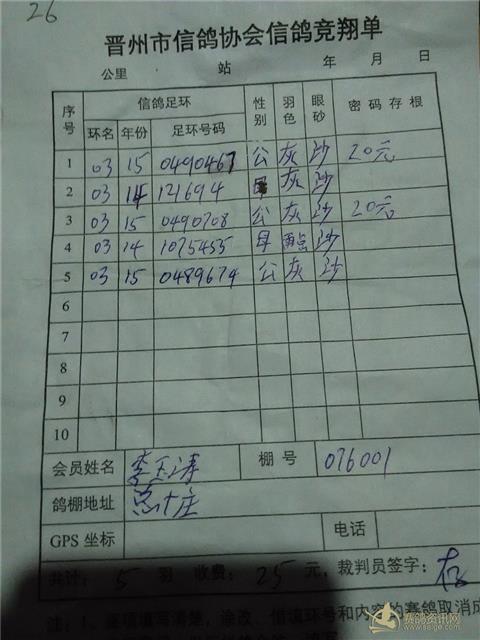 26
晋州市信鸽协会信鸽竞翔单
公里 站 年 月 日
序号 信鸽足环 性别 羽色 眼砂 密码存根
环名 年份 足环号码
1 03 15 0490467 公 灰 沙 20元
2 03 14 121694 灰 沙
3 03 15 0490708 公 灰 沙 20元
4 03 14 1075455 母 沙
5 03 15 0489674 公 灰 沙
6
7
8
9
10
会员姓名 李玉涛 棚号 076001
鸽棚地址 总十庄
GPS 坐标 电话
共计: 5 羽 收费: 25 元, 裁判员签字:
注: 1、要填填清楚, 涂改、借填环号和内容的赛鸽取消成
赛鸽资讯网
www.saige.com